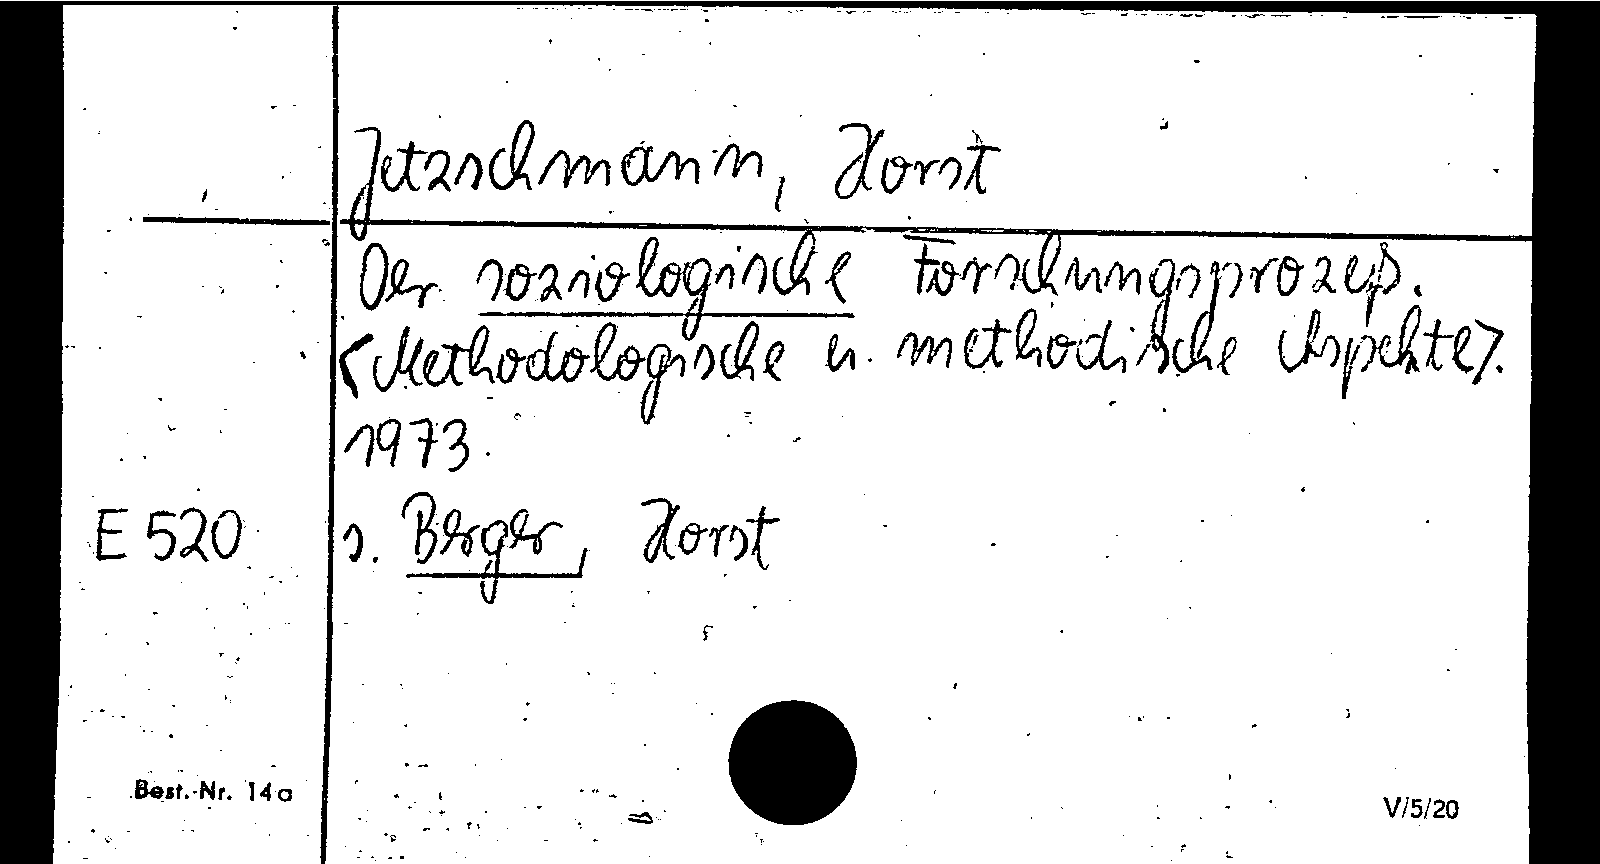 Jetzschmann, Horst
Der soziologische Forschungsprozeß.
<Methodologische u. methodische Aspekte>.
1973.
E 520 s. Berger, Horst
Best.-Nr. 14a
V/5/20